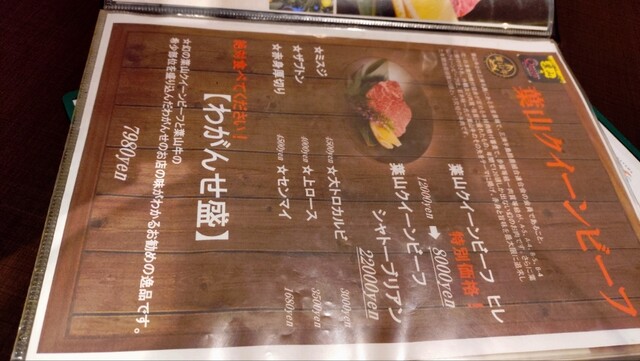 葉山クイーンビーフ
葉山クイーンビーフ ヒレ
特別価格！
12000yen ➡ 8000yen
葉山クイーンビーフ
シャトーブリアン
22000yen
☆ミスジ
☆ザブトン
☆赤身厚切り 4500yen
☆大トロカルビ 3000yen
☆上ロース 3500yen
☆センマイ 1680yen
絶対食べてください！
【わがんせ盛】
☆幻の葉山クイーンビーフと葉山牛の
希少部位を盛り込んだわがんせのお店の味がわかるお勧めの逸品です。
7980yen